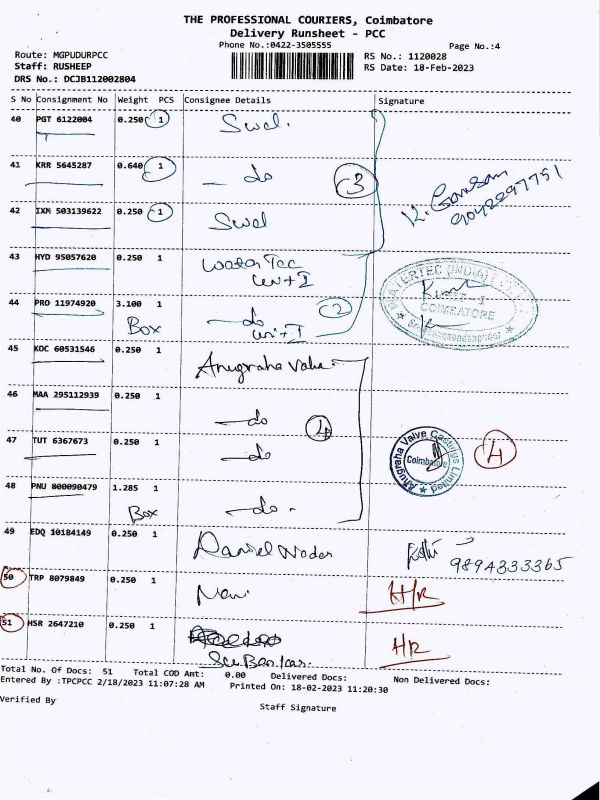 THE PROFESSIONAL COURIERS, Coimbatore
Delivery Runsheet - PCC
Phone No.:0422-3505555
Page No.:4
Route: MGPUDURPCC
RS No.: 1120028
Staff: RUSHEEP
RS Date: 18-Feb-2023
DRS No.: DCJB112002804
S No Consignment No Weight PCS Consignee Details Signature
40 PGT 6122004 0.250 1 Swel.
41 KRR 5645287 0.640 1 — do 3
9042297751
42 IXM 503139622 0.250 1 Swel
43 HYD 95057620 0.250 1 Water Tec
Unit I
WATERTEC (INDIA)
COIMBATORE
44 PRO 11974920 3.100 1 — do 2
Box Unit I
45 KOC 60531546 0.250 1 Anugraha Valve
46 MAA 295112939 0.250 1 — do 4
47 TUT 6367673 0.250 1 — do
Anugraha Valve Castings Limited
Coimbatore
4
48 PNU 800090479 1.285 1 — do -
Box
49 EDQ 10184149 0.250 1 Daniel Nadar
9894333365
50 TRP 8079849 0.250 1 H/R
51 HSR 2647210 0.250 1 HR
Total No. Of Docs: 51 Total COD Amt: 0.00 Delivered Docs: Non Delivered Docs:
Entered By :TPCPCC 2/18/2023 11:07:28 AM Printed On: 18-02-2023 11:20:30
Verified By
Staff Signature